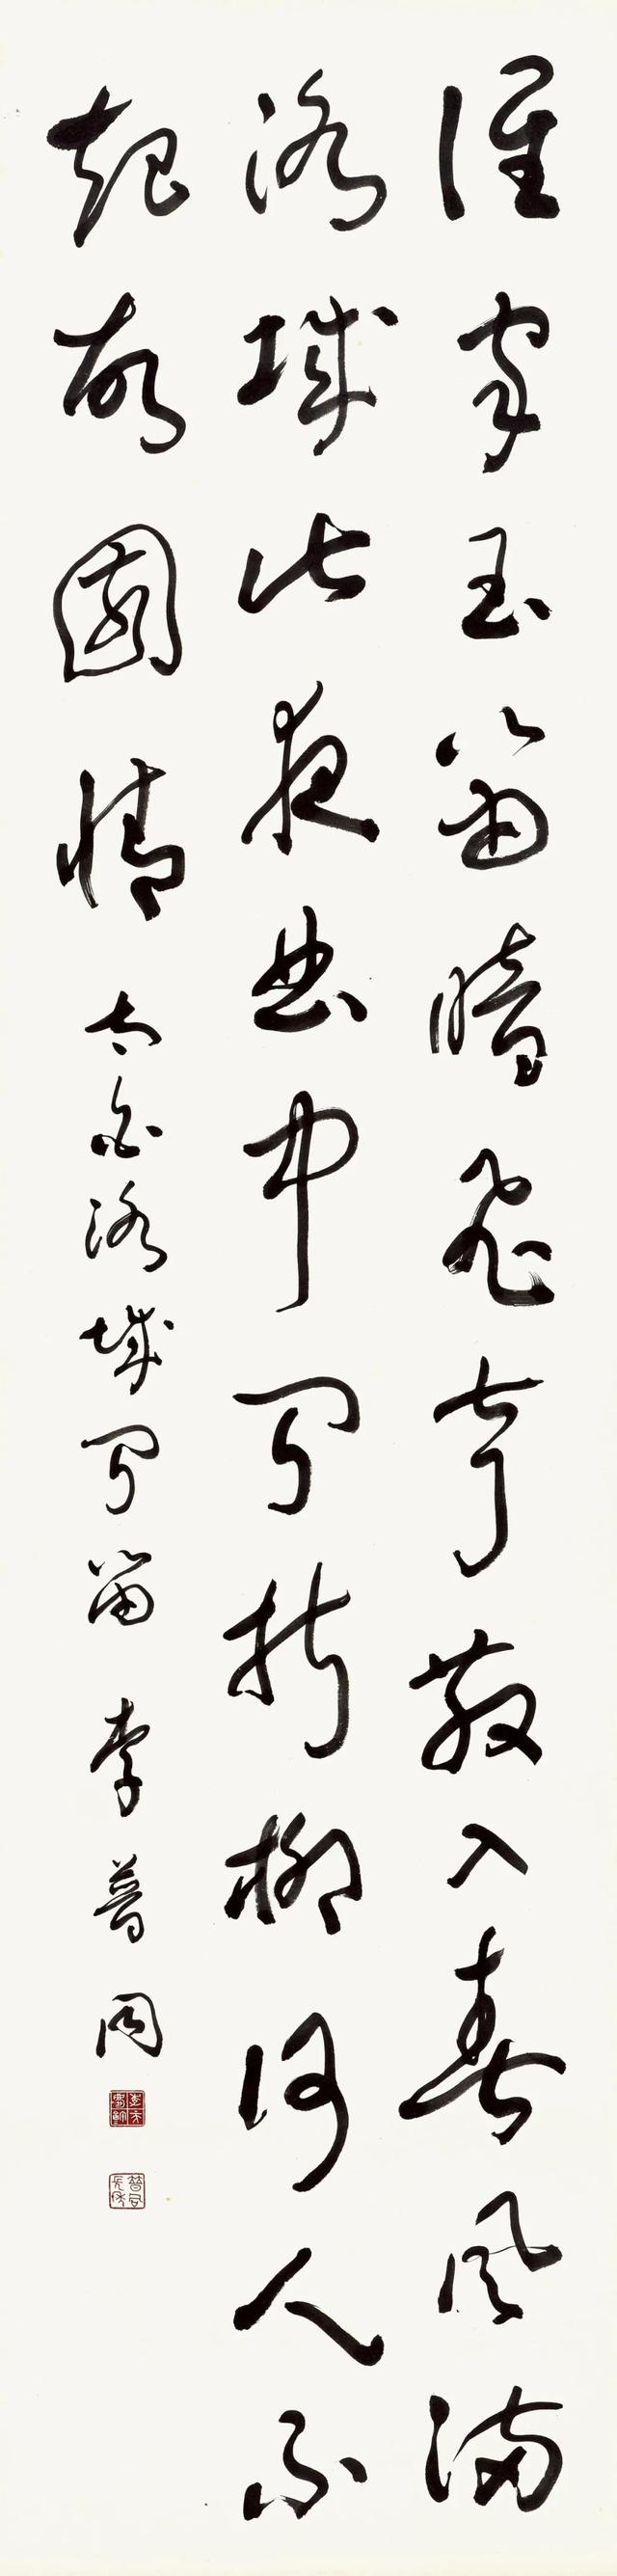 誰家玉笛暗飛聲散入春風滿
洛城此夜曲中聞折柳何人不
起故園情 太白洛城聞笛 李普同